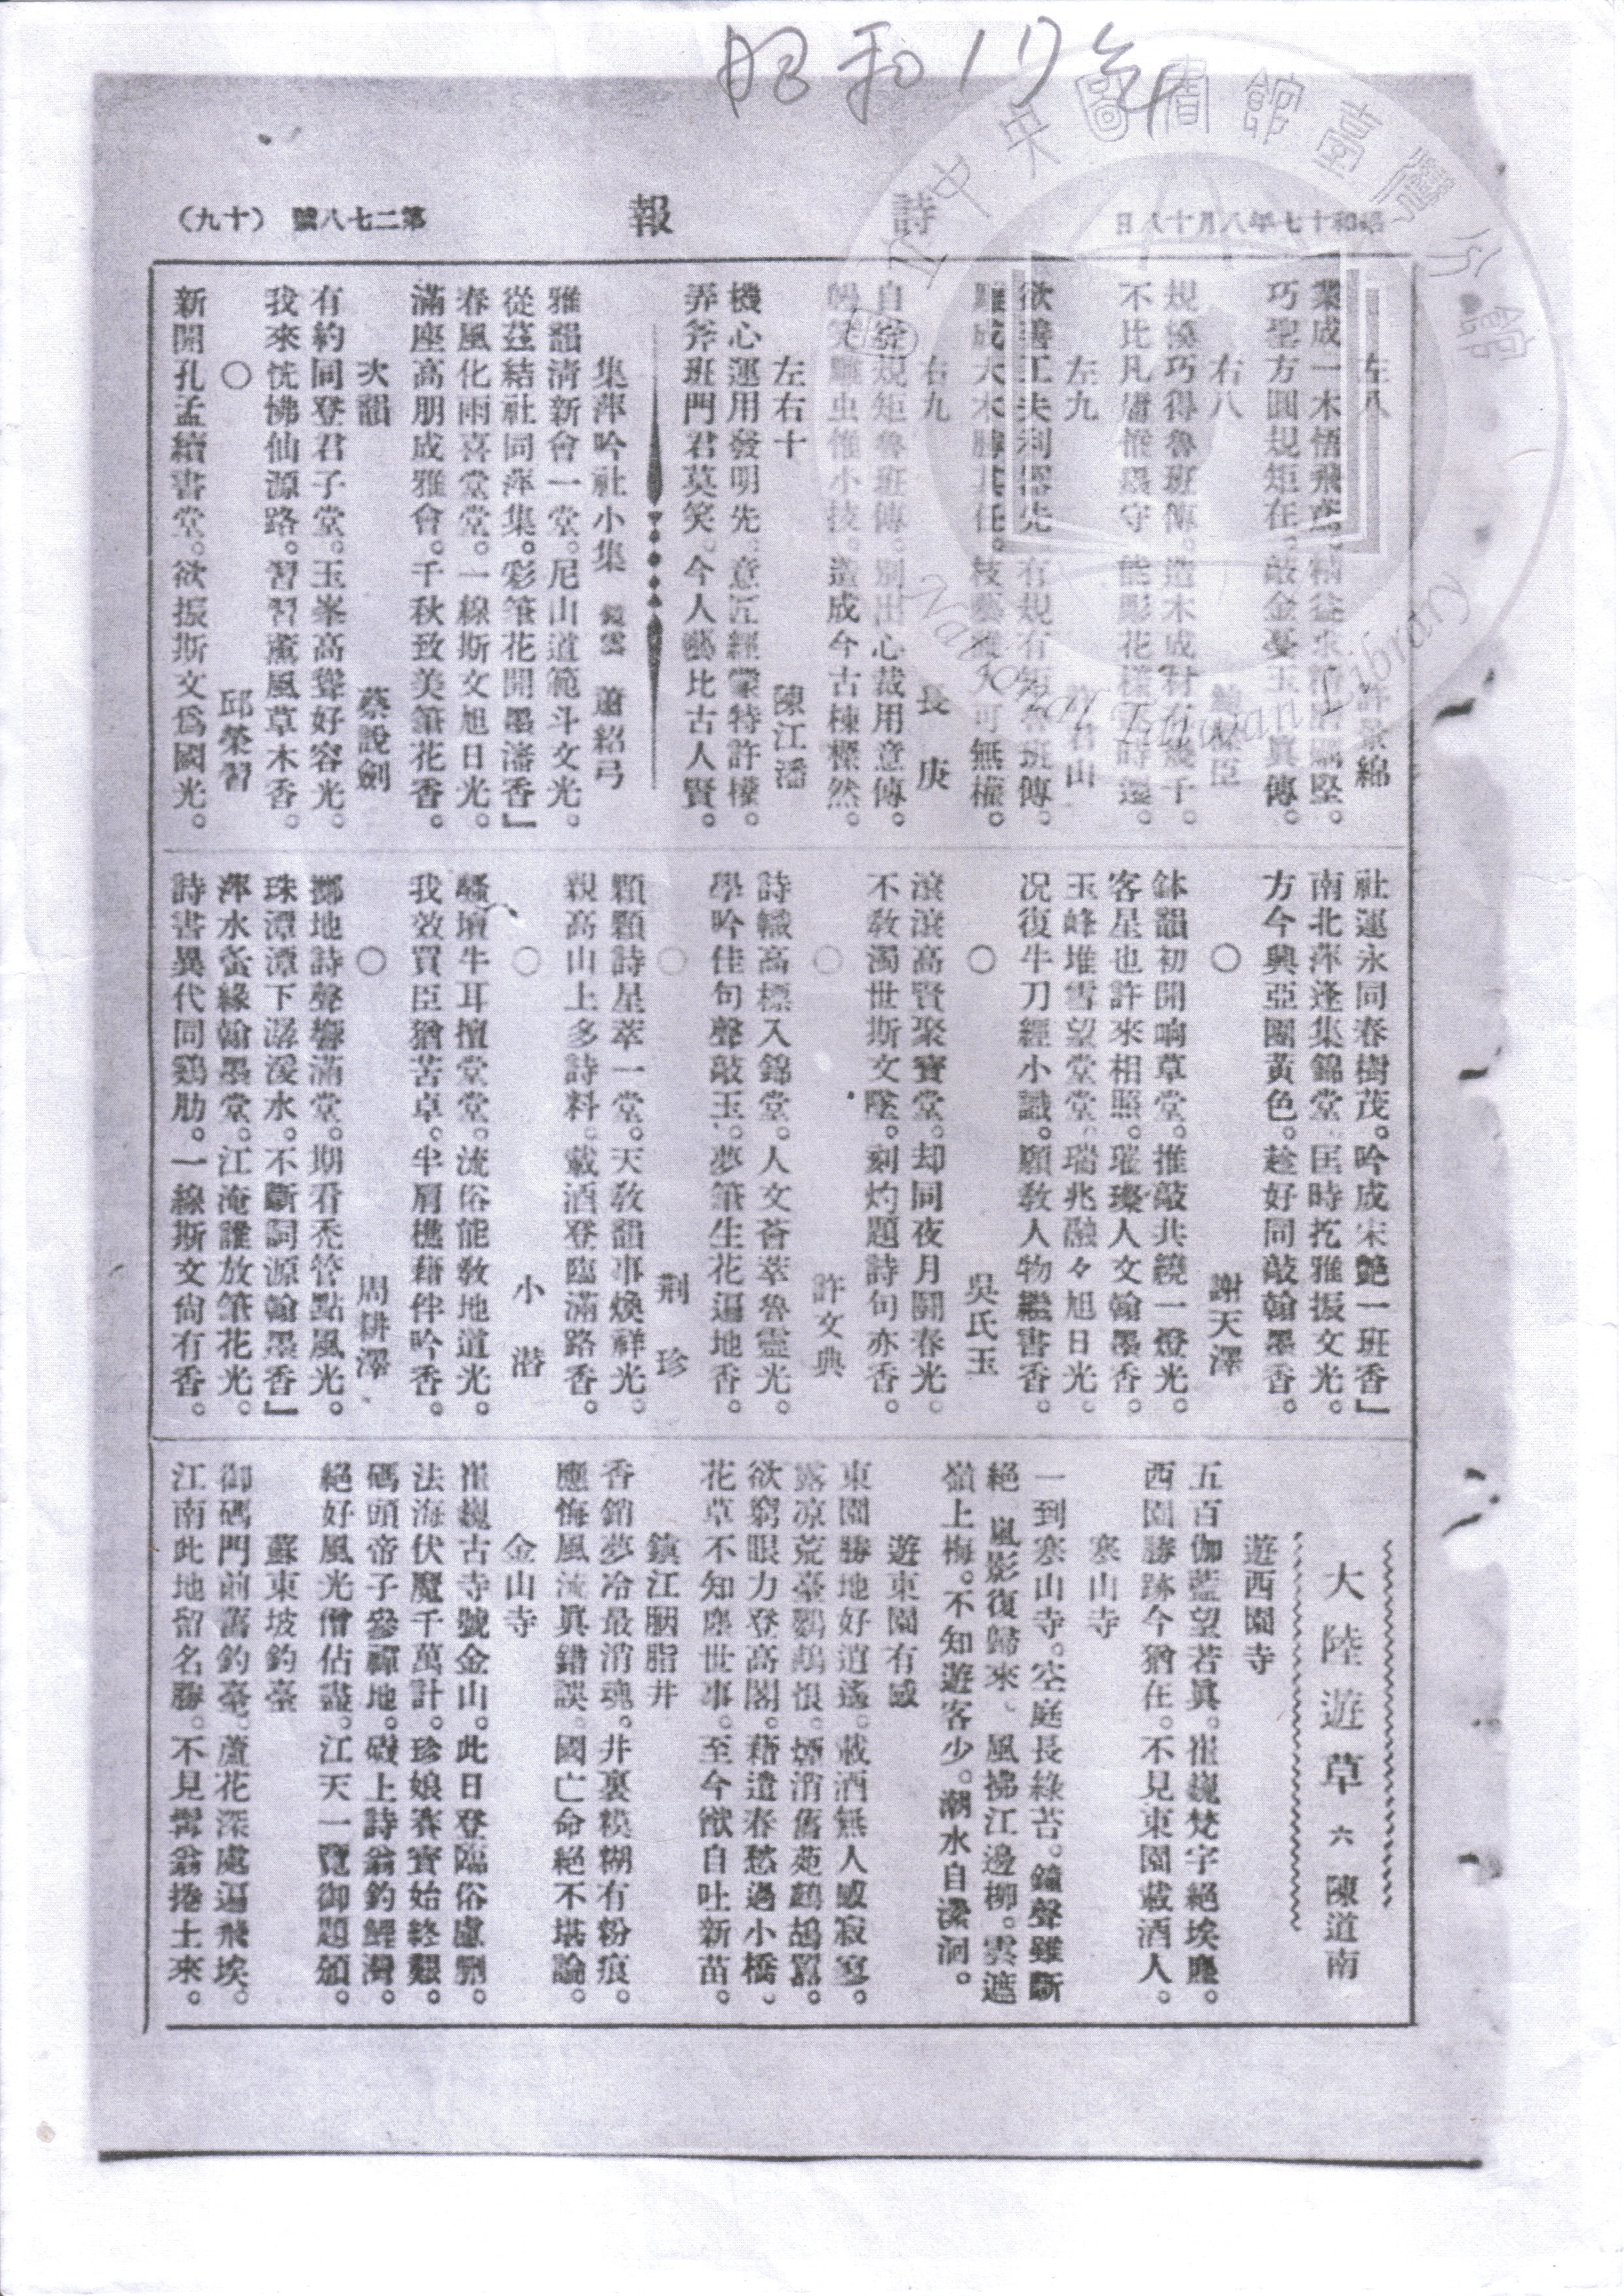 昭和17年
昭和十七年八月十八日
詩報
第二七八號 （十九）
左八
許景綿
業成一木悟飛鳶。精益求精屬堅。
巧聖方圓規矩在。敲金戛玉眞傳。
右八
臣
規矱巧得魯班傳。造木成材有幾千。
不比凡庸惟墨守 能彫花樣時還。
左九
許君山
欲善工夫利器先 有規有矩魯班傳。
雕成大木勝其任。技藝 可無權。
右九
長庚
自從規矩魯班傳。別出心裁用意傳。
雕虫惟小技。造成今古棟樑然。
左右十
陳江潘
機心運用發明先。意匠經營特許權。
弄斧班門君莫笑。今人藝比古人賢。
集萍吟社小集
鏡雲 蕭紹弓
雅韻清新會一堂。尼山道範斗文光。
從茲結社同萍集。彩筆花開墨瀋香」
春風化雨喜堂堂。一線斯文旭日光。
滿座高朋成雅會。千秋致美筆花香。
次韻
蔡說劍
有約同登君子堂。玉峯高聳好容光。
我來恍惚仙源路。習習薰風草木香。
○
邱榮習
新開孔孟續書堂。欲振斯文爲國光。
社運永同春樹茂。吟成宋艷一班香」
南北萍逢集錦堂。匡時扢雅振文光。
方今興亞團黃色。趁好同敲翰墨香。
○
謝天澤
鉢韻初開响草堂。推敲共繞一燈光。
客星也許來相照。璀璨人文翰墨香。
玉峰堆雪望堂堂。瑞兆融々旭日光。
況復牛刀經小識。願敎人物繼書香。
○
吳氏玉
滾滾高賢聚寶堂。却同夜月鬪春光。
不敎濁世斯文墜。刻灼題詩句亦香。
○
許文典
詩幟高標入錦堂。人文薈萃魯靈光。
學吟佳句聲敲玉。夢筆生花遍地香。
○
荆珍
顆顆詩星萃一堂。天敎韻事煥祥光。
親高山上多詩料。載酒登臨滿路香。
○
小潛
騷壇牛耳擅堂堂。流俗能敎地道光。
我效買臣猶苦卓。半肩樵藉伴吟香。
○
周耕澤
擲地詩聲響滿堂。期看禿管點風光。
珠潭潭下潺湲水。不斷詞源翰墨香」
萍水蚤緣翰墨堂。江淹誰放筆花光。
詩書異代同鷄肋。一線斯文尙有香。
大陸遊草 六 陳道南
遊西園寺
五百伽藍望若眞。崔巍梵宇絕埃塵。
西園勝跡今猶在。不見東園載酒人。
寒山寺
一到寒山寺。空庭長綠苔。鐘聲雖斷
絕 嵐影復歸來、風拂江邊柳。雲遮
嶺上梅。不知遊客少。潮水自瀠洄。
遊東園有感
東園勝地好逍遙。載酒無人感寂寞。
露凉荒臺鸚鵡恨。煙消舊苑鷓鴣囂。
欲窮眼力登高閣。藉遣春愁過小橋、
花草不知塵世事。至今猷自吐新苗。
鎮江胭脂井
香銷夢冷最消魂。井裏糢糊有粉痕。
應悔風流眞錯誤。國亡命絕不堪論。
金山寺
崔巍古寺號金山。此日登臨俗慮刪。
法海伏魔千萬計。珍娘賽寶始終艱。
碼頭帝子參禪地。磯上詩翁釣鯉灣。
絕好風光僧佔盡。江天一覽御題頒。
蘇東坡釣臺
御碼門前舊釣臺。蘆花深處逼飛埃。
江南此地留名勝。不見髯翁捲土來。